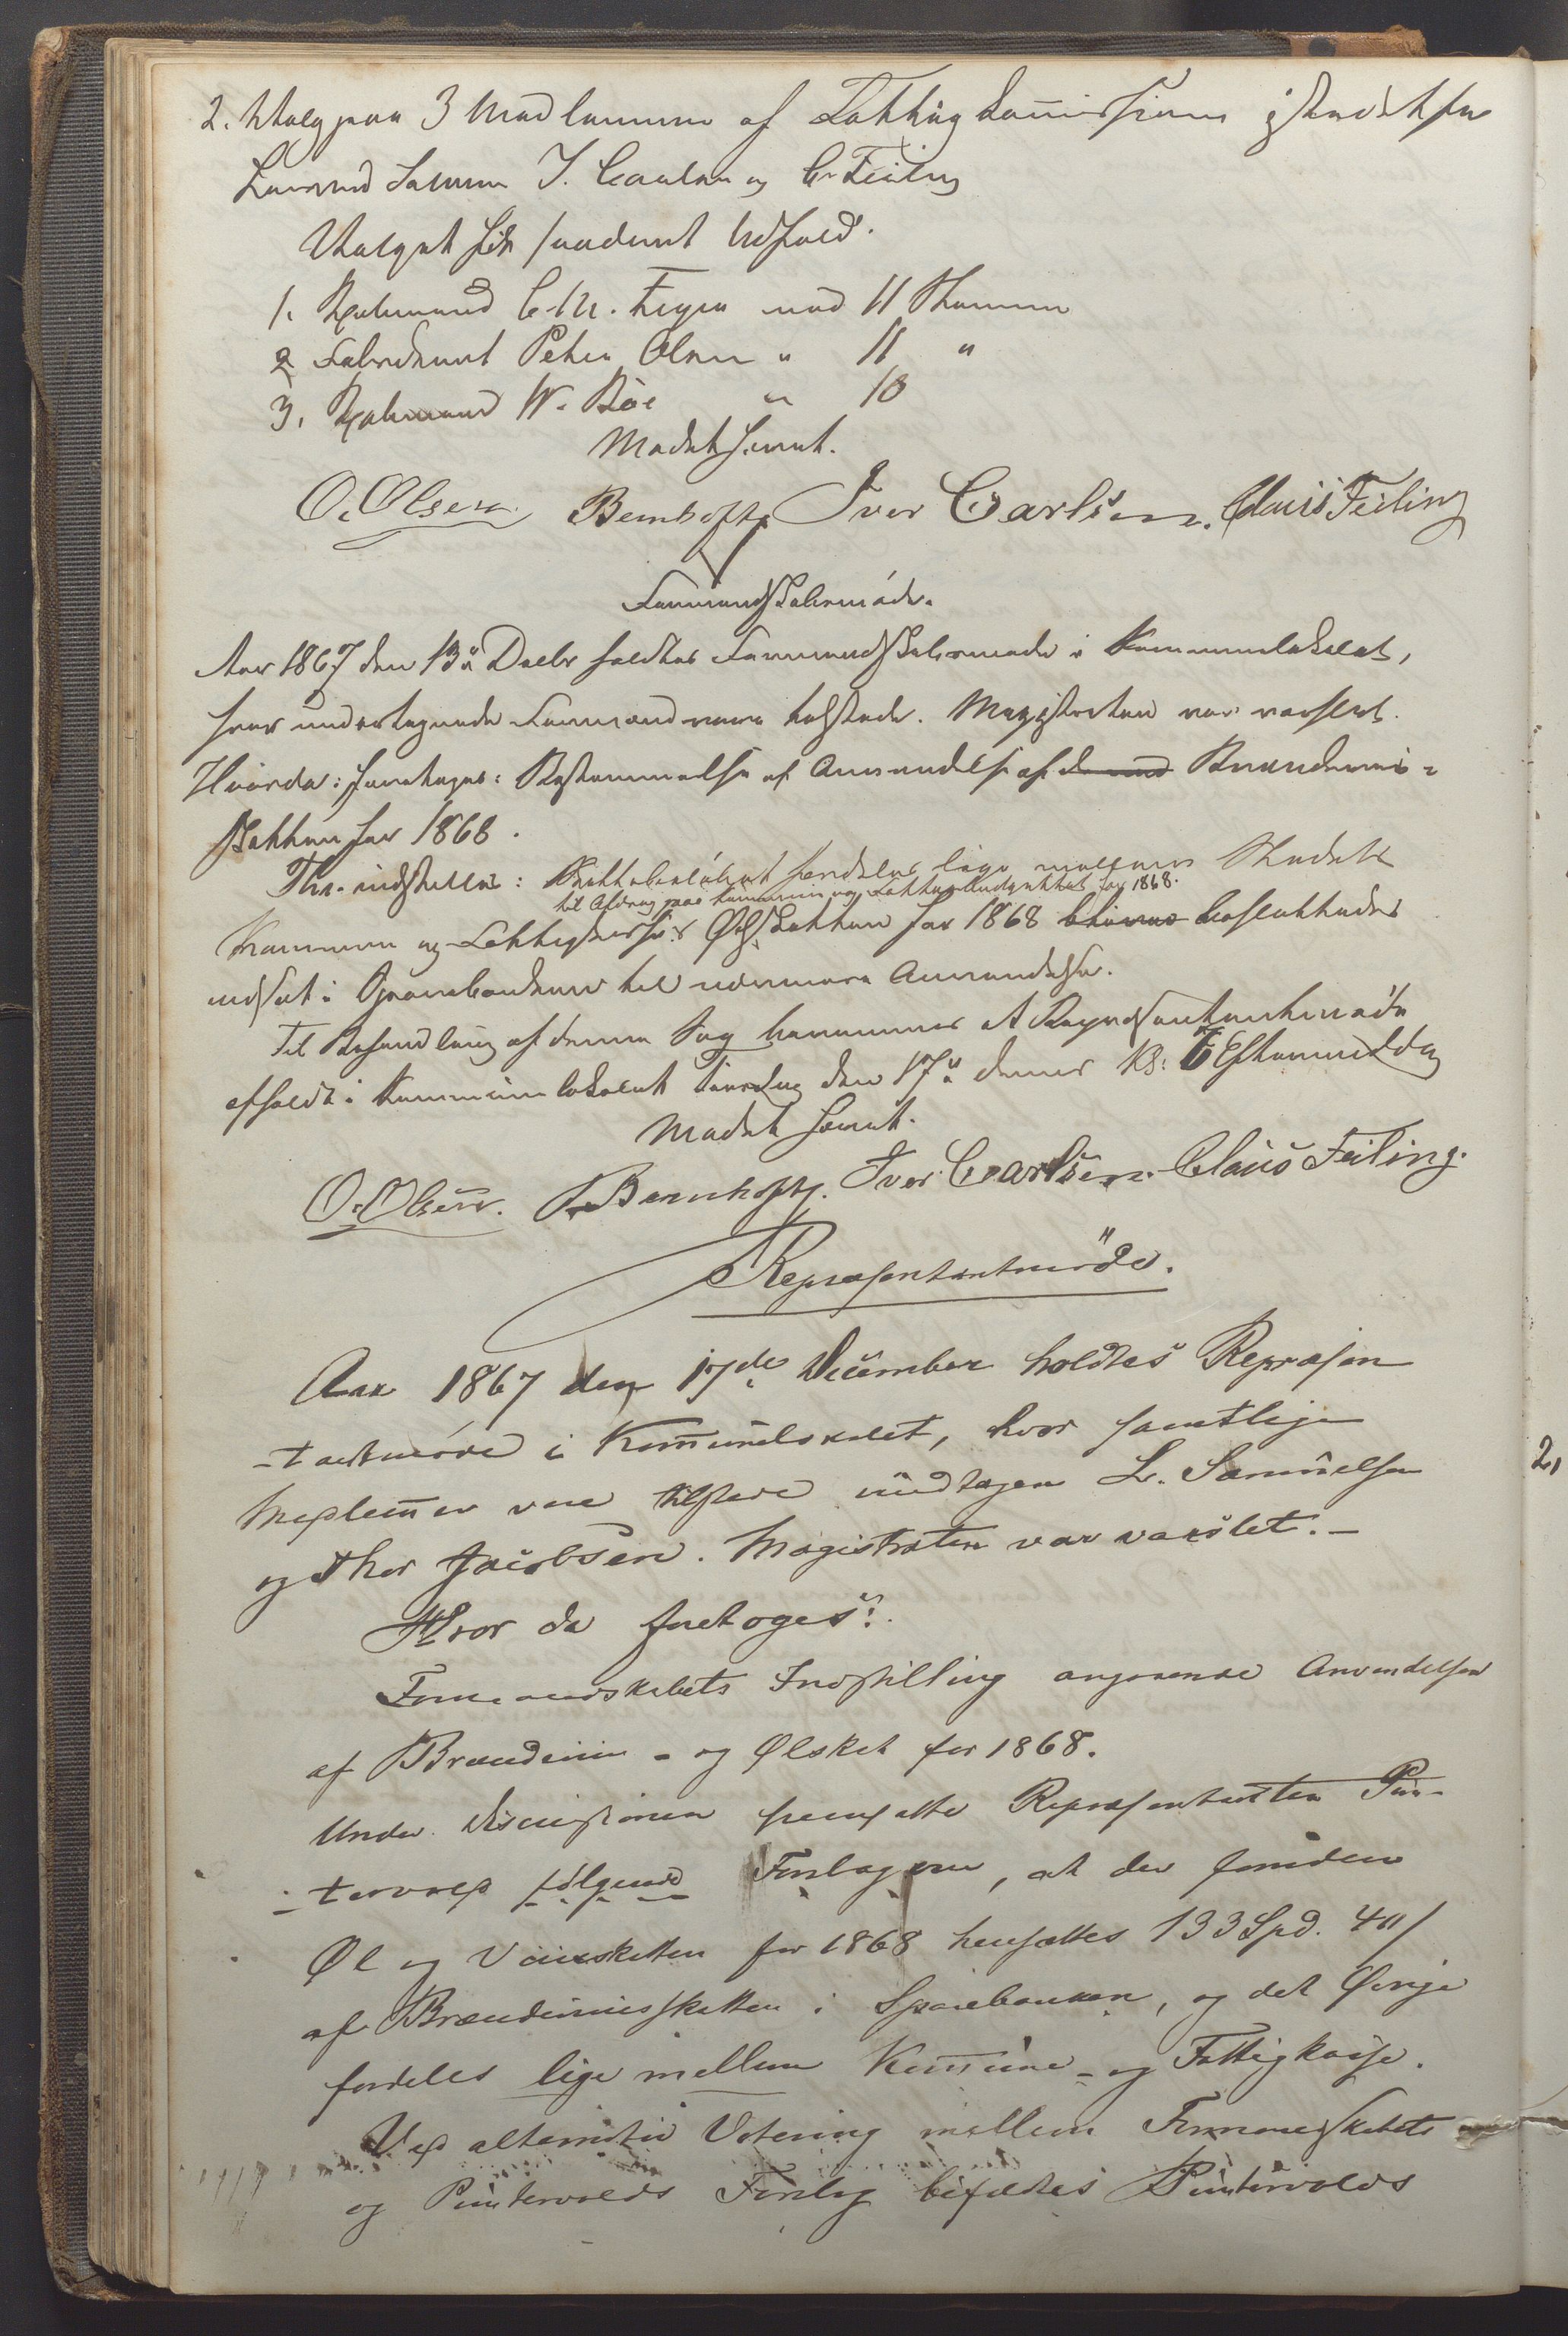 2. Valg paa 3 Medlemmer af Fattigkommissionen istedetfor
Lauritz Samuelsen J. Carlsen og C. Feiling
Valget fik saadant Udfald.
1. Kjøbmand C. M. Feyer med 11 Stemmer
2. Fabrikant Peter Olsen " 11 "
3. Kjøbmand W. Bøe " 10
Mødet hævet.
O. Olsen Bernhoft Iver Carlsen. Claus Feiling
Formandskabsmøde.
Aar 1867 den 13de Decbr holdtes Formandskabsmøde i Kommunelokalet,
hvor undertegnede Formænd vare tilstede. Magistraten var varslet.
Hvorda: foretoges: Bestemmelse af Anvendelse af Brændeviins-
skatten for 1868.
Thi indstilles: Skattebeløbet fordeles lige mellem Stadets
til Afdrag paa Kommune og Fattigudgifter for 1868.
Kommune og Fattigkasse. Ølskatten for 1868 besluttedes
indsat i Sparebanken til nærmere Anvendelse.
Til Behandling af denne Sag berammes et Repræsentantmøde
afholdt i Kommunelokalet Tirsdag den 17de dennes Kl: 6 Eftermiddag
Mødet hævet.
O. Olsen. Bernhoft. Iver Carlsen. Claus Feiling.
Repræsentantmøde.
Aar 1867 den 17de December holdtes Repræsen
-tantmøde i Kommunelokalet, hvor samtlige
Medlemmer vare tilstede undtagen L. Samuelsen
og Thor Jacobsen. Magistraten var varslet. –
Hvor da foretoges:
Formandskabets Indstilling angaaende Anvendelsen
af Brændeviin - og Ølskat for 1868.
Under Discussionen fremsatte Repræsentanten Pün-
-tervold følgende Forslag om, at der foruden
Øl og Viinskatten for 1868 hensættes 133 Spd. 40 s
af Brændeviinsskatten i Sparebanken, og det Øvrige
fordeles lige mellem Kommune - og Fattigkasse.
Ved alternativ Votering mellem Formandskabets
og Püntervolds Forslag bifaldtes Püntervolds
2,